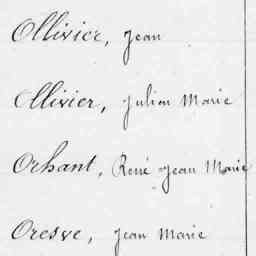 Ollivier, Jean
Ollivier, Julien Marie
Orhant, René Jean Marie
Oresve, Jean Marie